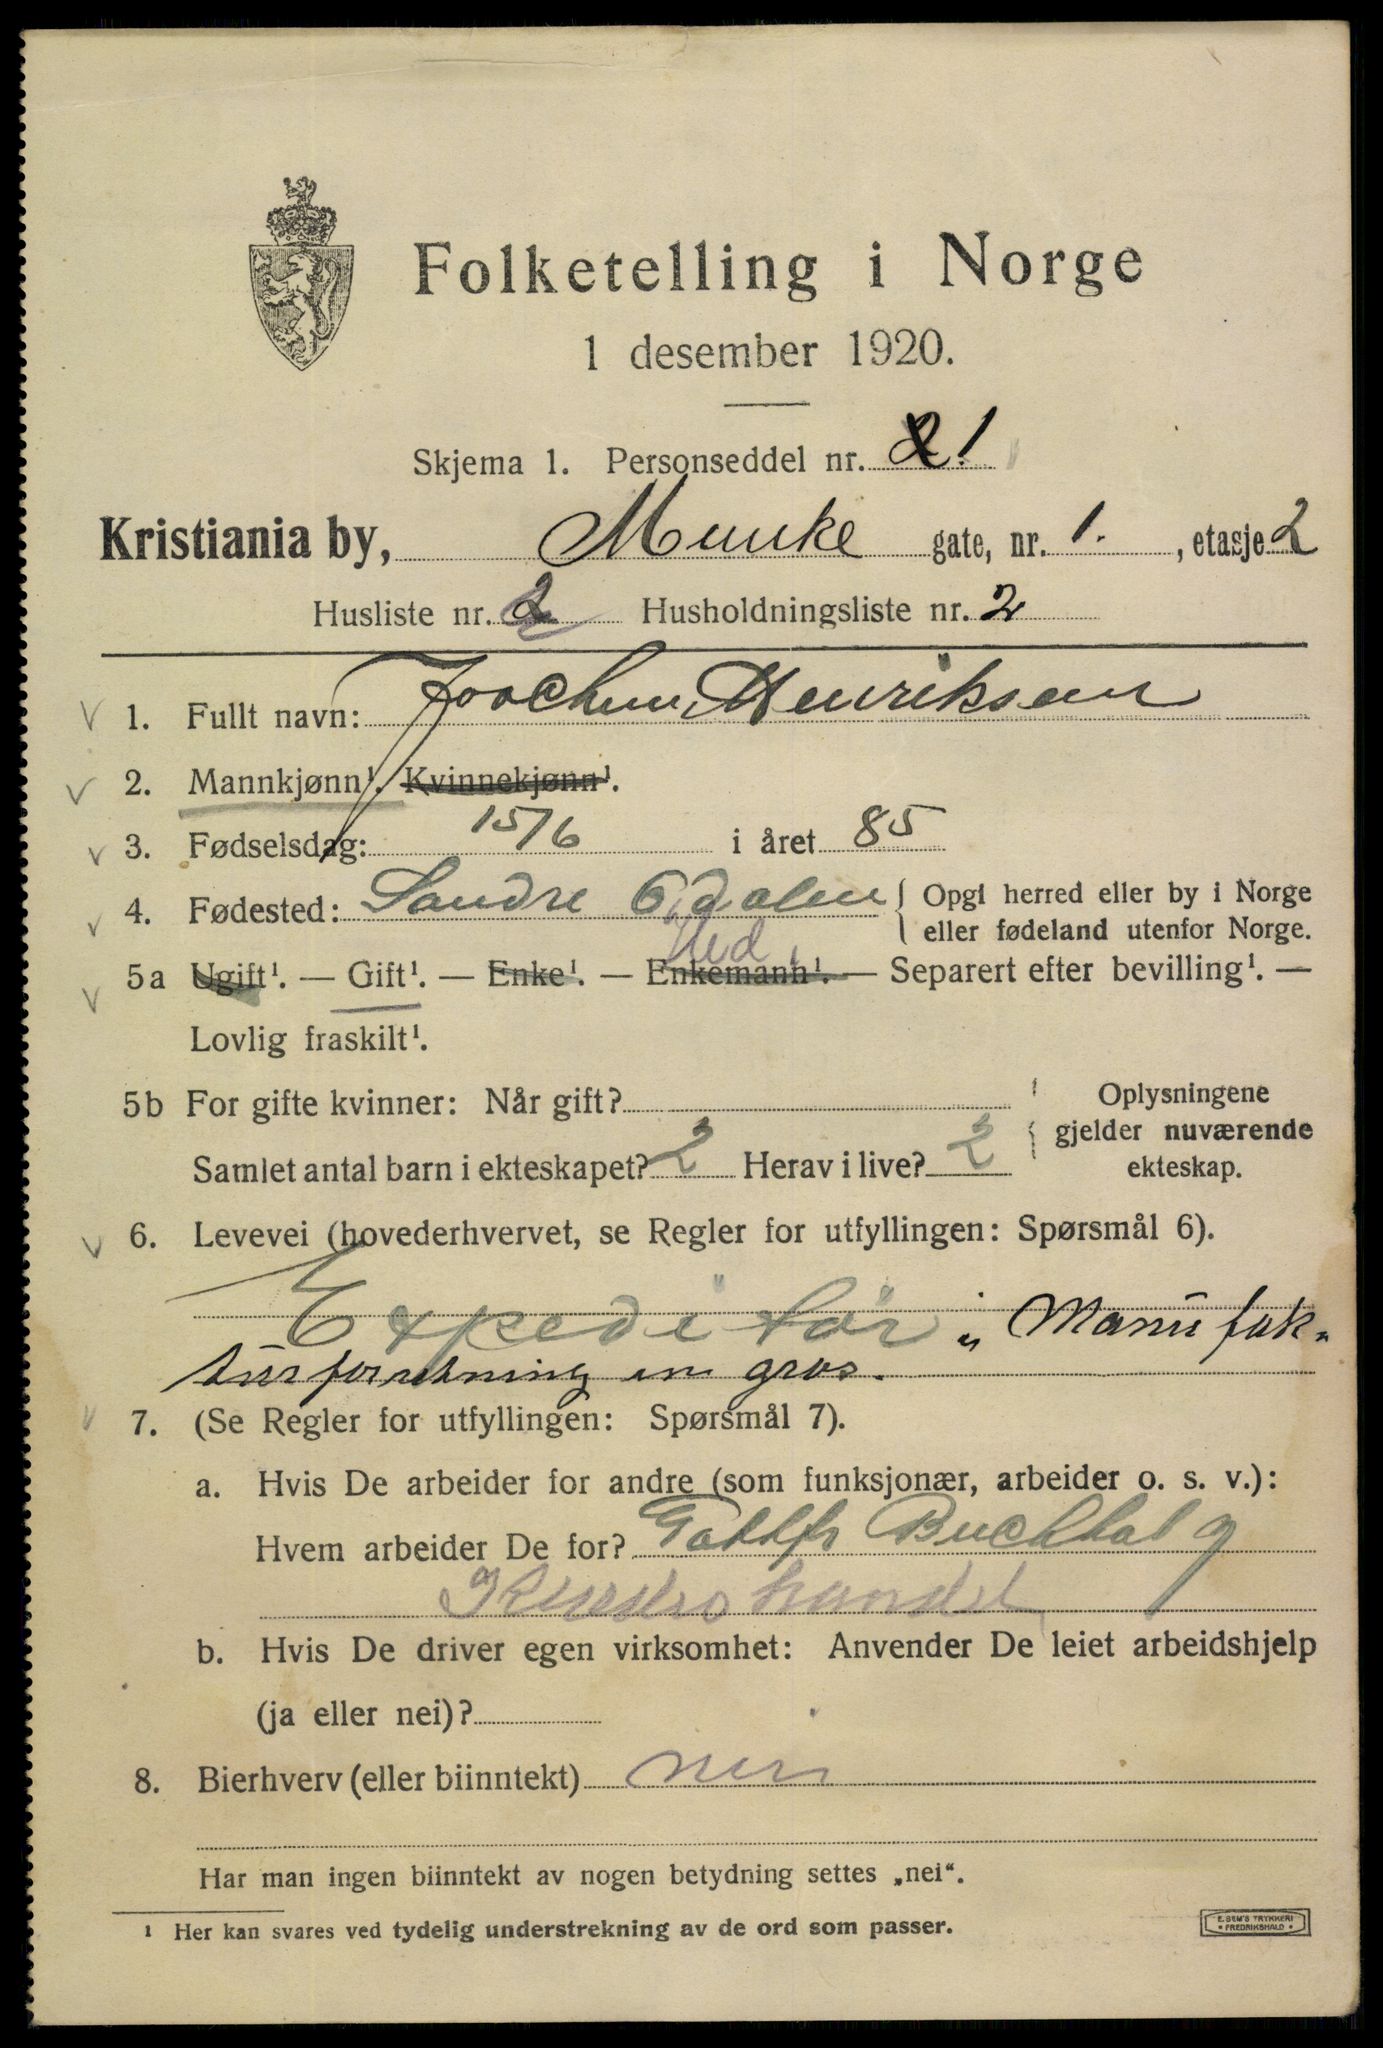 Folketelling i Norge
1 desember 1920.
Skjema 1. Personseddel nr. 2 1
Kristiania by, Munke gate, nr. 1. , etasje 2
Husliste nr. 2 Husholdningsliste nr. 2
1. Fullt navn: Joachim Henriksen
2. Mannkjønn¹. Kvinnekjønn¹.
3. Fødselsdag: 15/6 i året 85
4. Fødested: Søndre Odalen { Opgi herred eller by i Norge
eller fødeland utenfor Norge.
Hed.
5a Ugift¹. — Gift¹. — Enke¹. — Enkemann¹. — Separert efter bevilling¹. —
Lovlig fraskilt¹.
5b For gifte kvinner: Når gift? Oplysningene
Samlet antal barn i ekteskapet? 2 Herav i live? 2 { gjelder nuværende
ekteskap.
6. Levevei (hovederhvervet, se Regler for utfyllingen: Spørsmål 6).
Expeditør „ Manufak-
turforretning en gros.
7. (Se Regler for utfyllingen: Spørsmål 7).
a. Hvis De arbeider for andre (som funksjonær, arbeider o. s. v.):
Hvem arbeider De for?
b. Hvis De driver egen virksomhet: Anvender De leiet arbeidshjelp
(ja eller nei)?
8. Bierhverv (eller biinntekt) nei
Har man ingen biinntekt av nogen betydning settes „nei“.
¹ Her kan svares ved tydelig understrekning av de ord som passer.
E. SEM'S TRYKKERI
• FREDRIKSHALD •